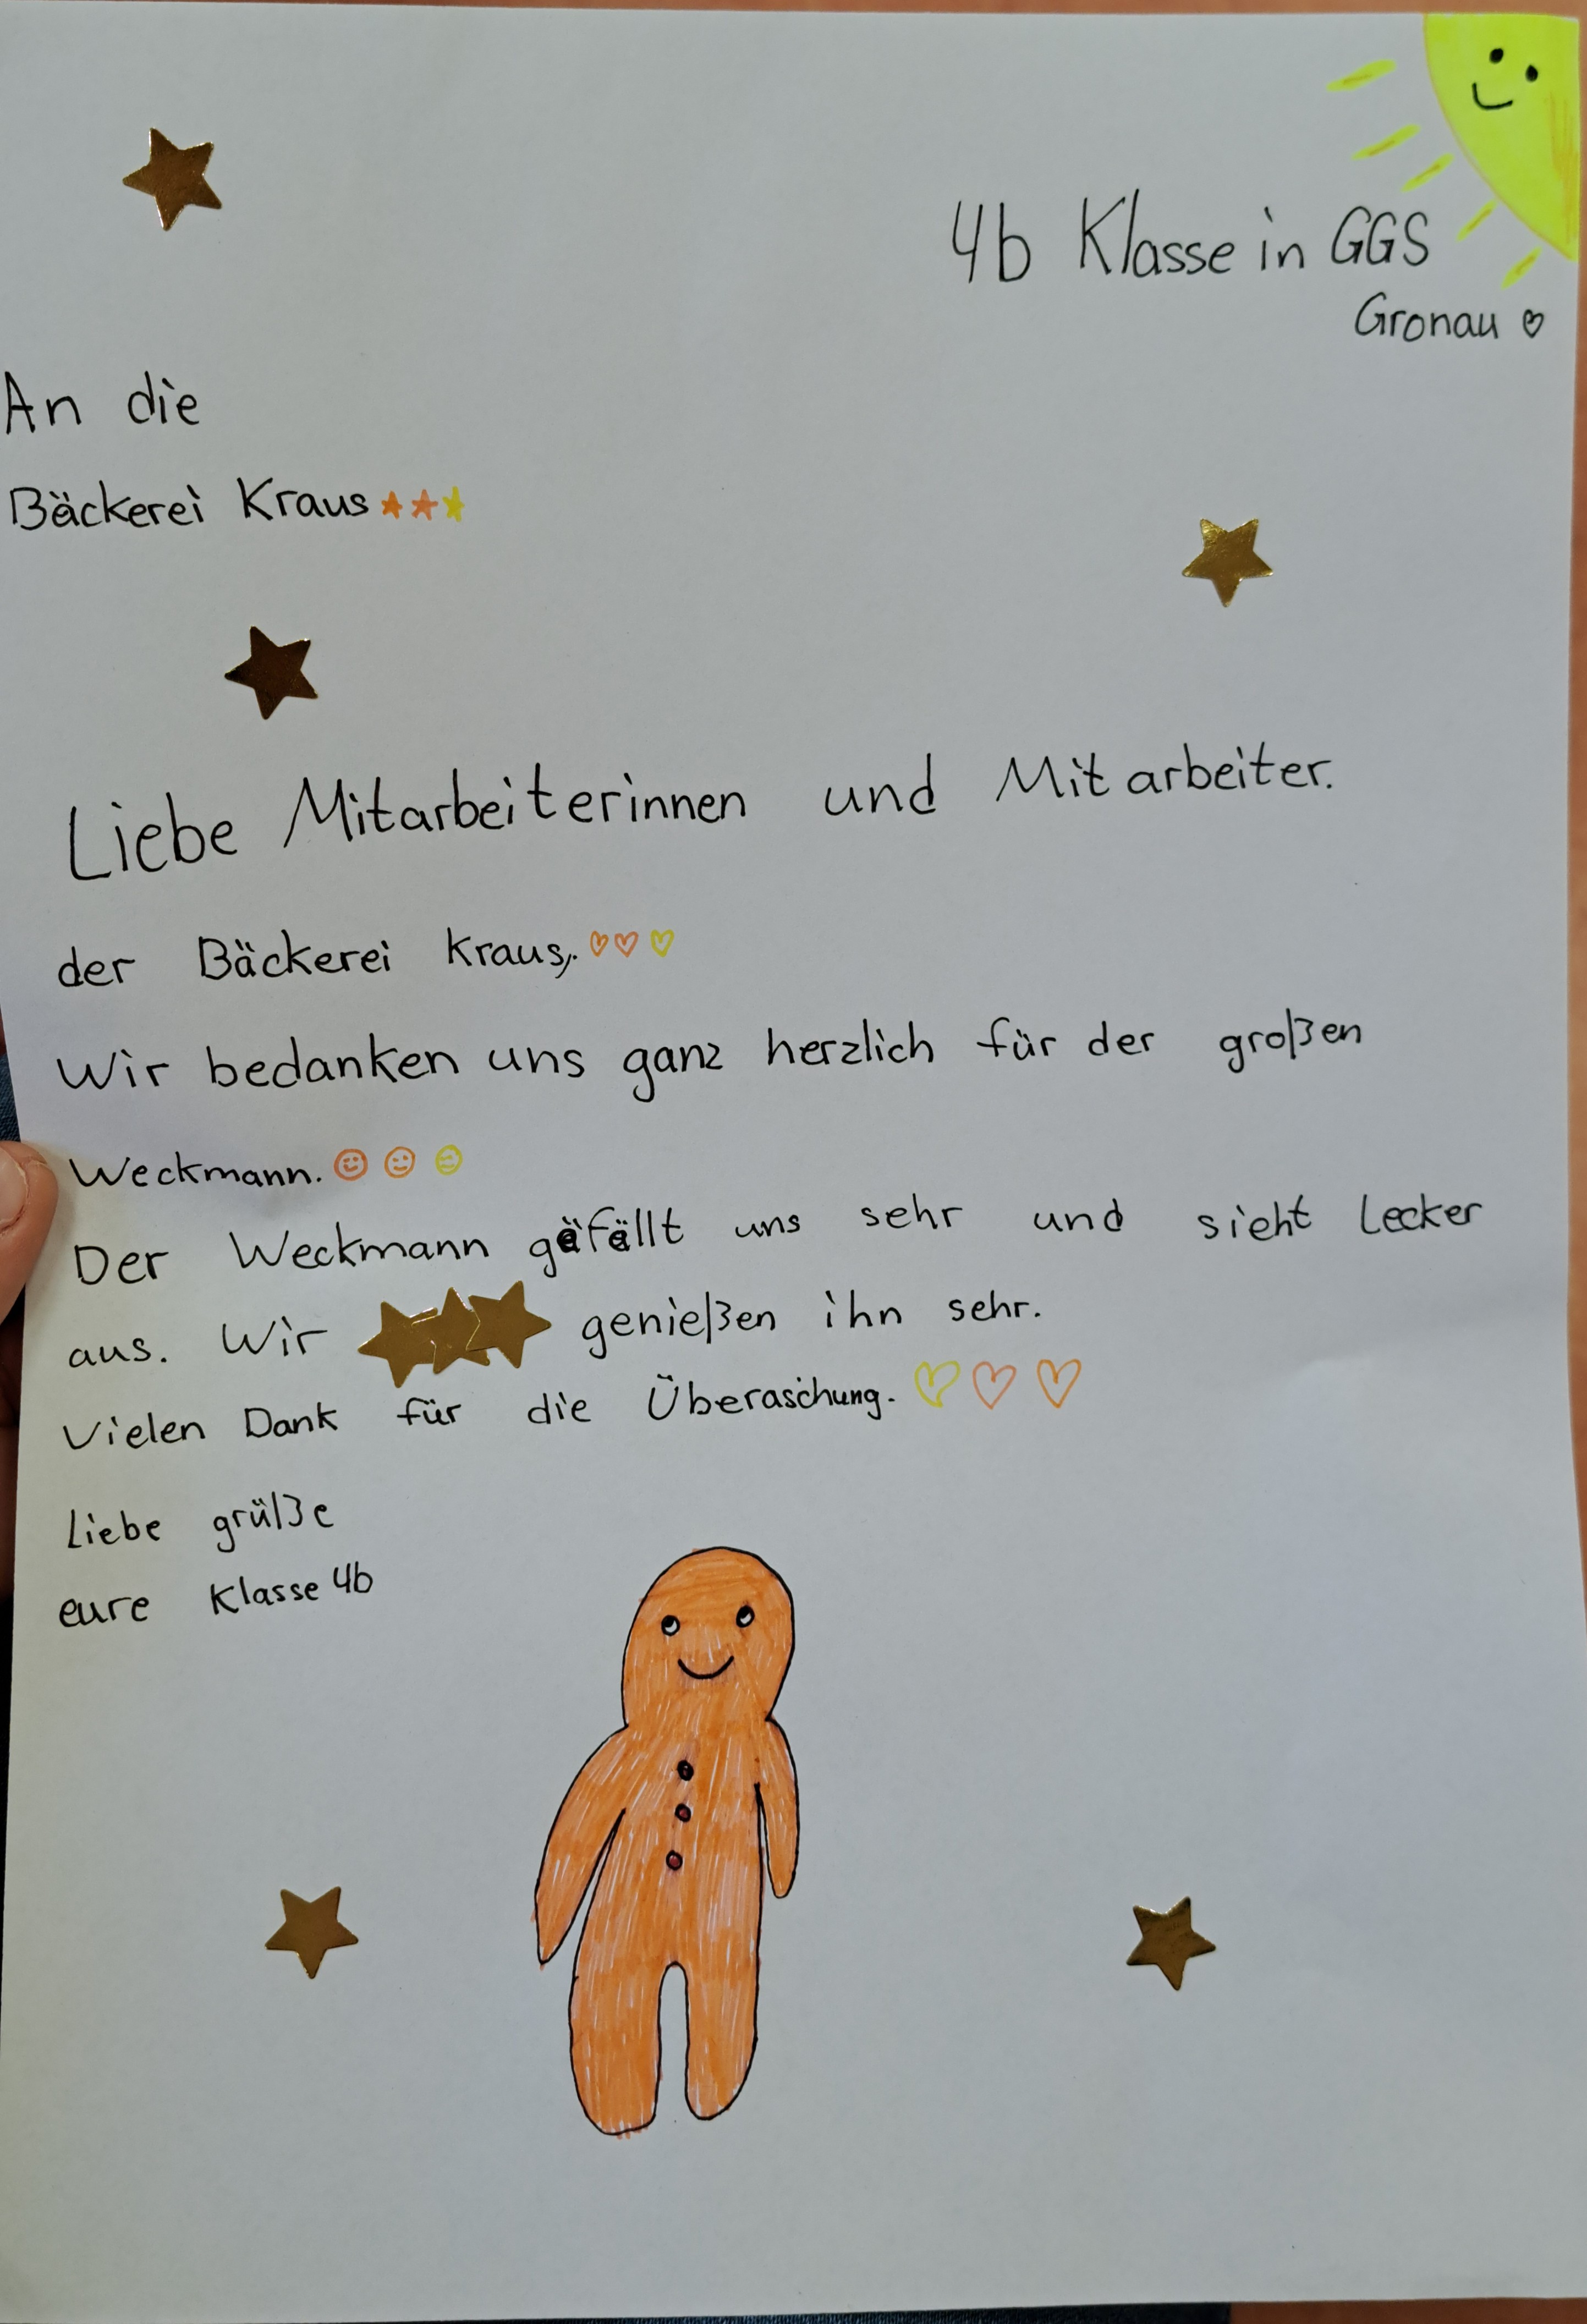 4b Klasse in GGS
Gronau
An die
Bäckerei Kraus
Liebe Mitarbeiterinnen und Mitarbeiter.
der Bäckerei Kraus,.
Wir bedanken uns ganz herzlich für der großen
Weckmann.
Der Weckmann gefällt uns sehr und sieht lecker
aus. Wir genießen ihn sehr.
Vielen Dank für die Überaschung.
Liebe grüße
eure Klasse 4b